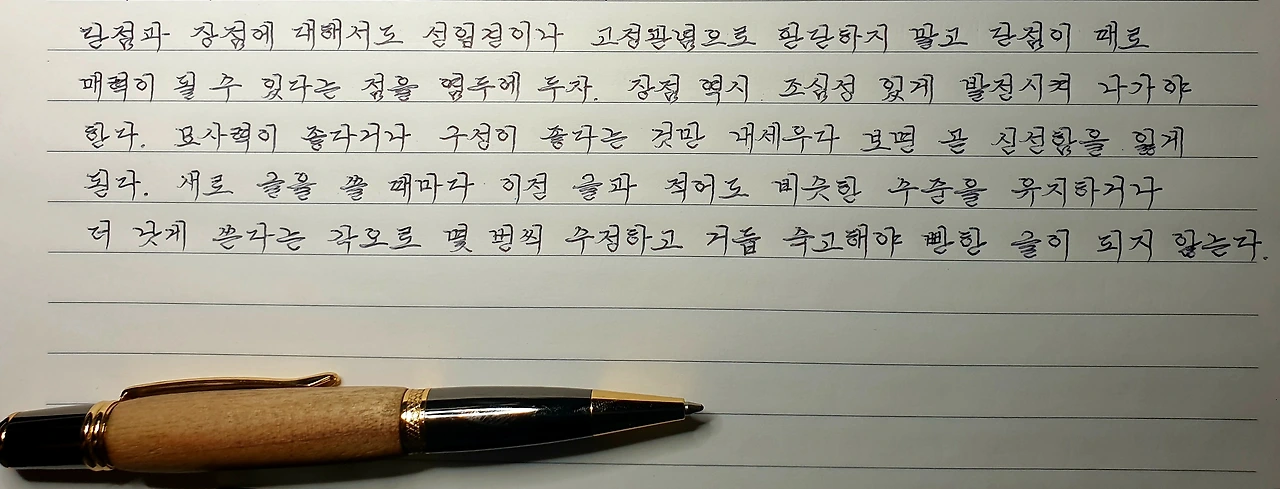 단점과 장점에 대해서도 선입견이나 고정관념으로 판단하지 말고 단점이 때로
매력이 될 수 있다는 점을 염두에 두자. 장점 역시 조심성 있게 발전시켜 나가야
한다. 묘사력이 좋다거나 구성이 좋다는 것만 내세우다 보면 곧 신선함을 잃게
된다. 새로 글을 쓸 때마다 이전 글과 적어도 비슷한 수준을 유지하거나
더 낫게 쓴다는 각오로 몇 번씩 수정하고 거듭 숙고해야 빤한 글이 되지 않는다.